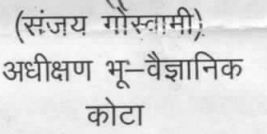 (संजय गोस्वामी)
अधीक्षण भू–वैज्ञानिक
कोटा